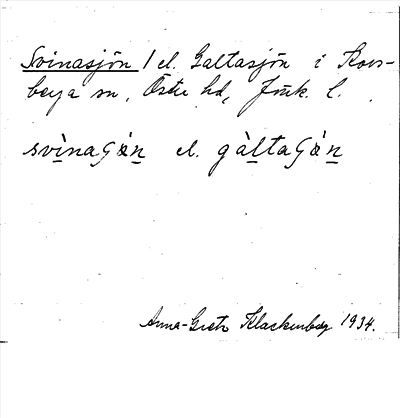 Svinasjön / el. Galtasjön i Kors-
berga sn, Östra hd, Jönk. l.
svìnaʃön el. gàltaʃön
Anna-Greta Klackenberg 1934.